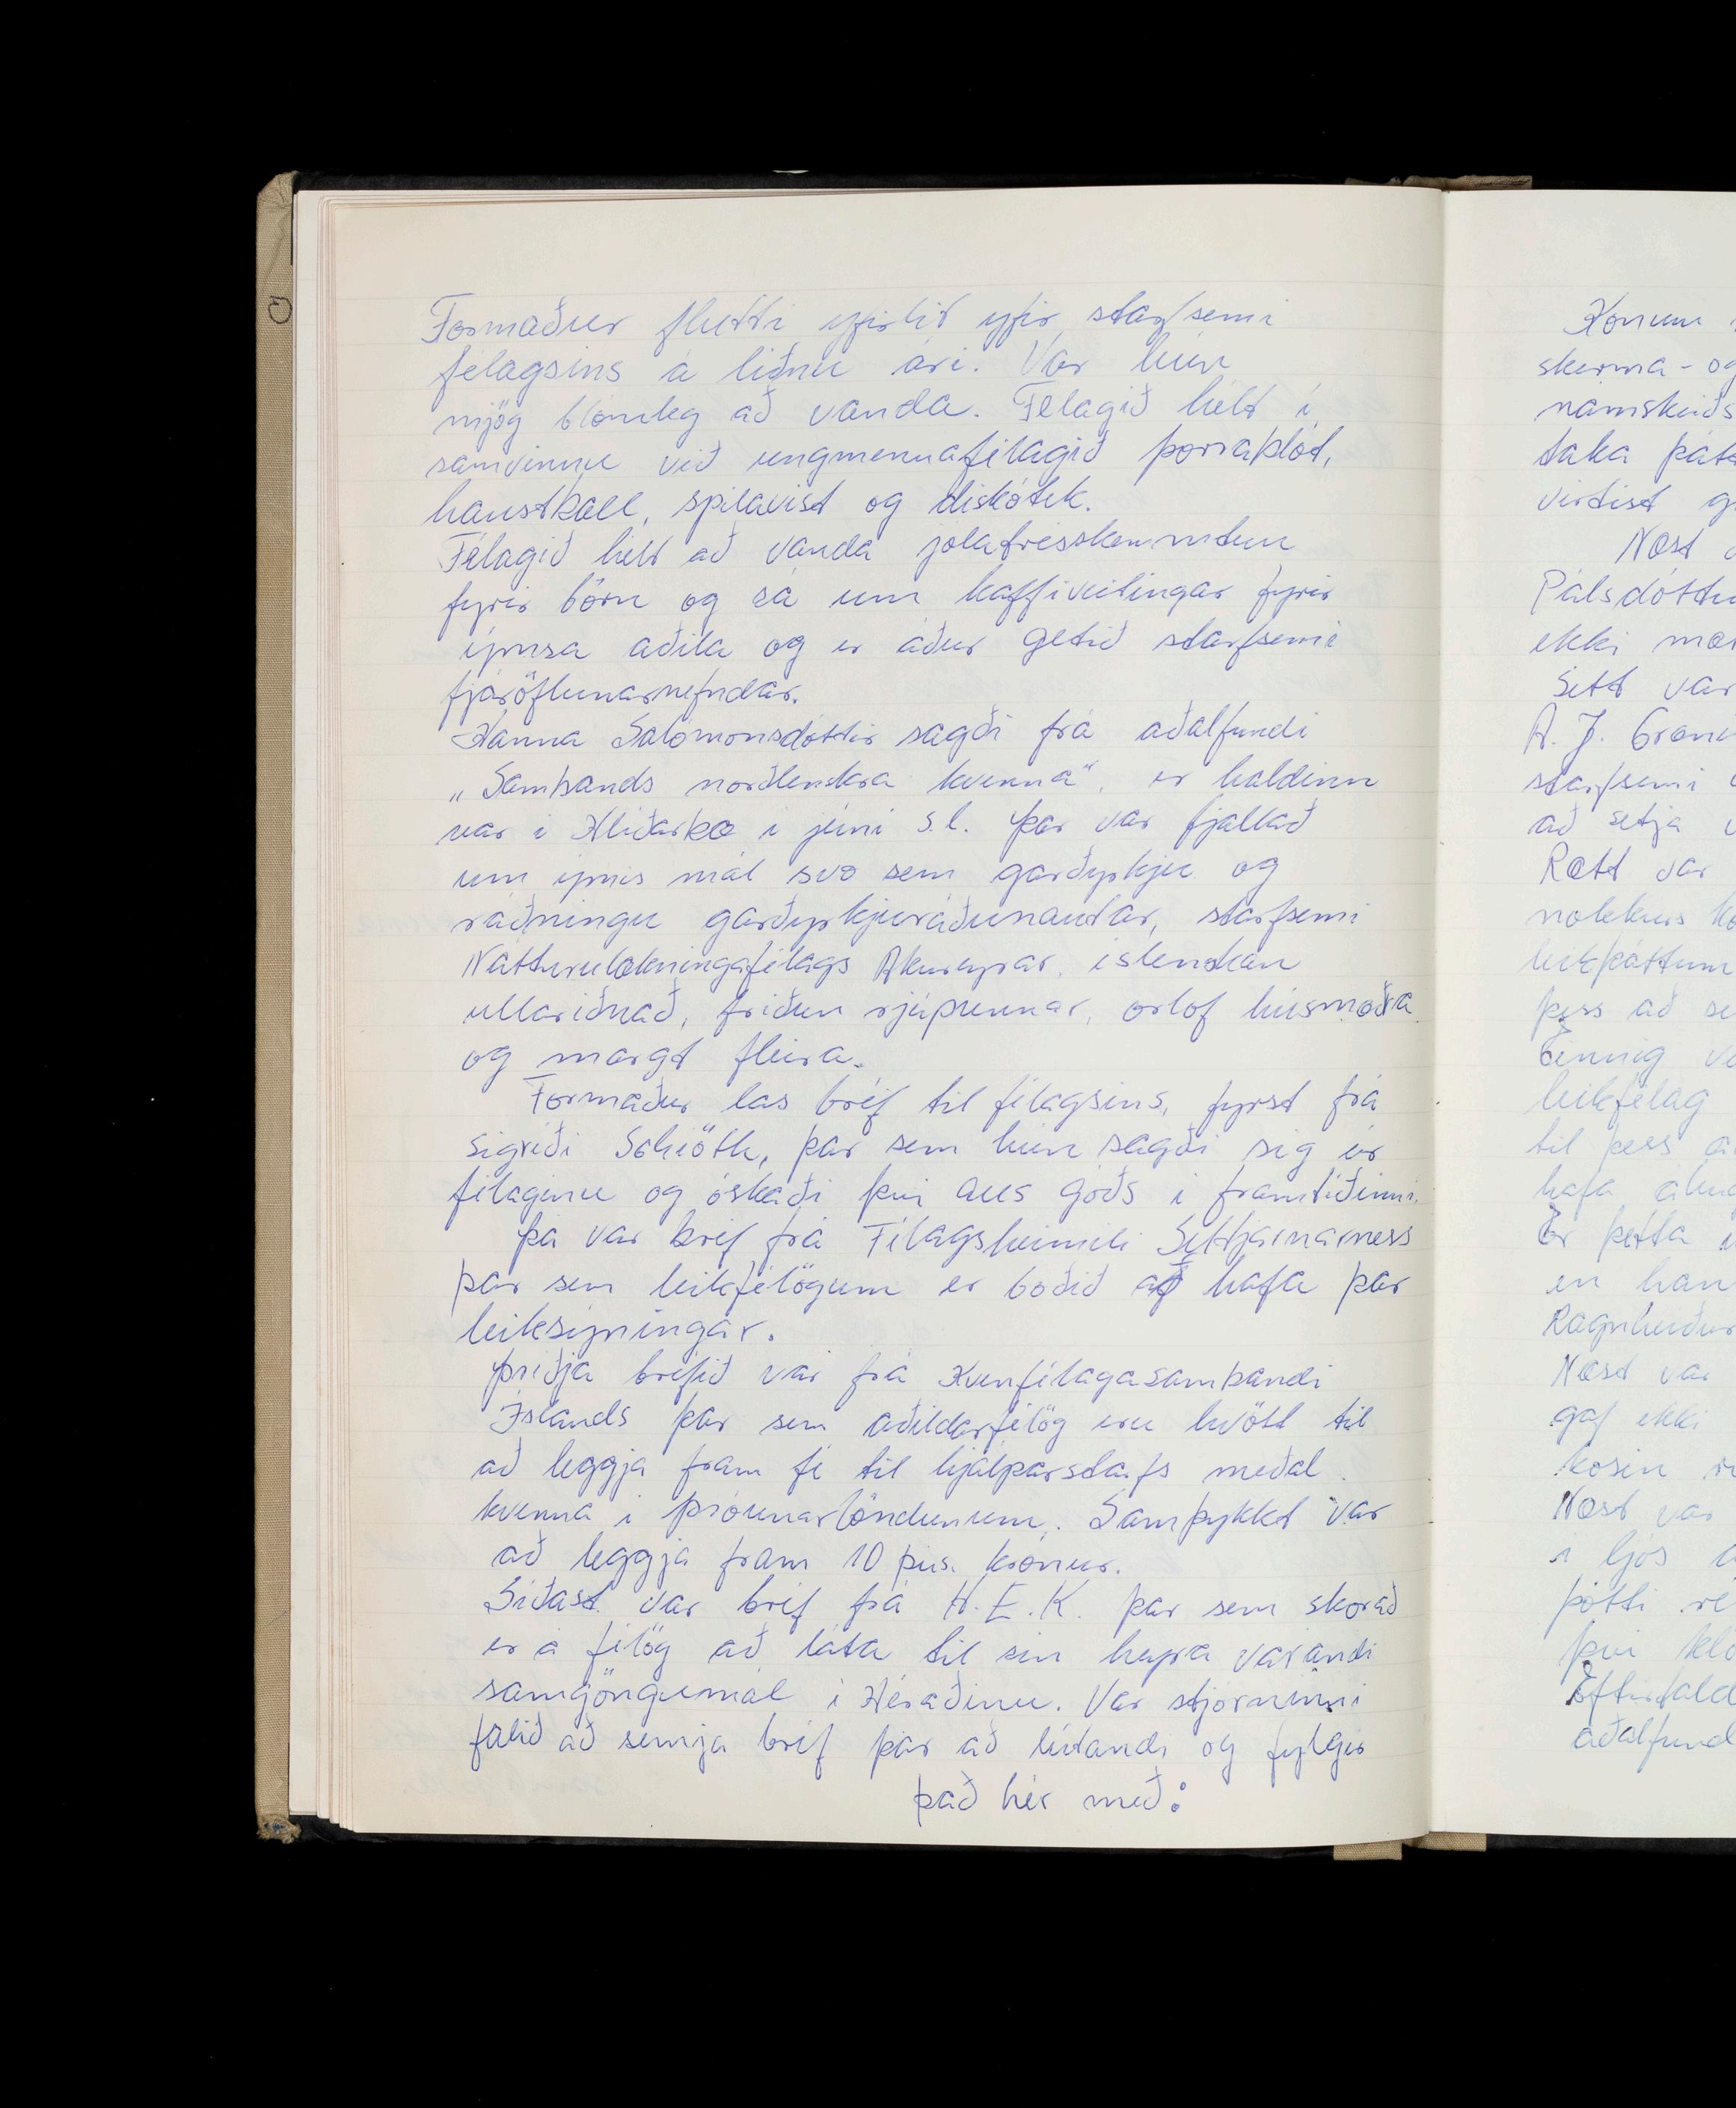 Formaður flutti yfirlit yfir starfsemi
félagsins á liðnu ári. Var hún
mjög blómleg að vanda. Félagið hélt í
samvinnu við ungmennafélagið þorrablót,
haustball, spilavist og diskótek.
Félagið hélt að vanda jólatrésskemmtun
fyrir börn og sá um kaffiveitingar fyrir
ýmsa aðila og er áður getið starfsemi
fjáröflunarnefndar.
Hanna Salómonsdóttir sagði frá aðalfundi
„Sambands norðlenskra kvenna“, er haldinn
var í Hlíðarbæ í júní s.l. Þar var fjallað
um ýmis mál svo sem garðyrkju og
ráðningu garðyrkjuráðunautar, starfsemi
Náttúrulækningafélags Akureyrar, íslenskan
ullariðnað, friðun rjúpunnar, orlof húsmæðra
og margt fleira.
Formaður las bréf til félagsins, fyrst frá
Sigríði Schiöth, þar sem hún sagði sig úr
félaginu og óskaði því alls góðs í framtíðinni.
Þá var bréf frá Félagsheimili Seltjarnarness
þar sem leikfélögum er boðið að hafa þar
leiksýningar.
Þriðja bréfið var frá Kvenfélagasambandi
Íslands þar sem aðildarfélög eru hvött til
að leggja fram fé til hjálparstarfs meðal
kvenna í þróunarlöndunum. Samþykkt var
að leggja fram 10 þús. krónur.
Síðast var bréf frá H.E.K. þar sem skorað
er á félög að láta til sín heyra varðandi
samgöngumál í Héraðinu. Var stjórninni
falið að semja bréf þar að lútandi og fylgir
það hér með:
Konum
skerma - og
námskeiðs
taka þátt
virtist
Næst
Pálsdóttu
ekki
Sett var
A. J.
starfsemi
að setja
Rætt var
nokkurs
leikþáttum
þess að
Einnig
leikfélag
til þess
hafa
Er þetta
en
Ragnheiður
Næst var
gaf ekki
kosin
Næst var
í ljós
þótti
því
Eftirtald
aðalfund